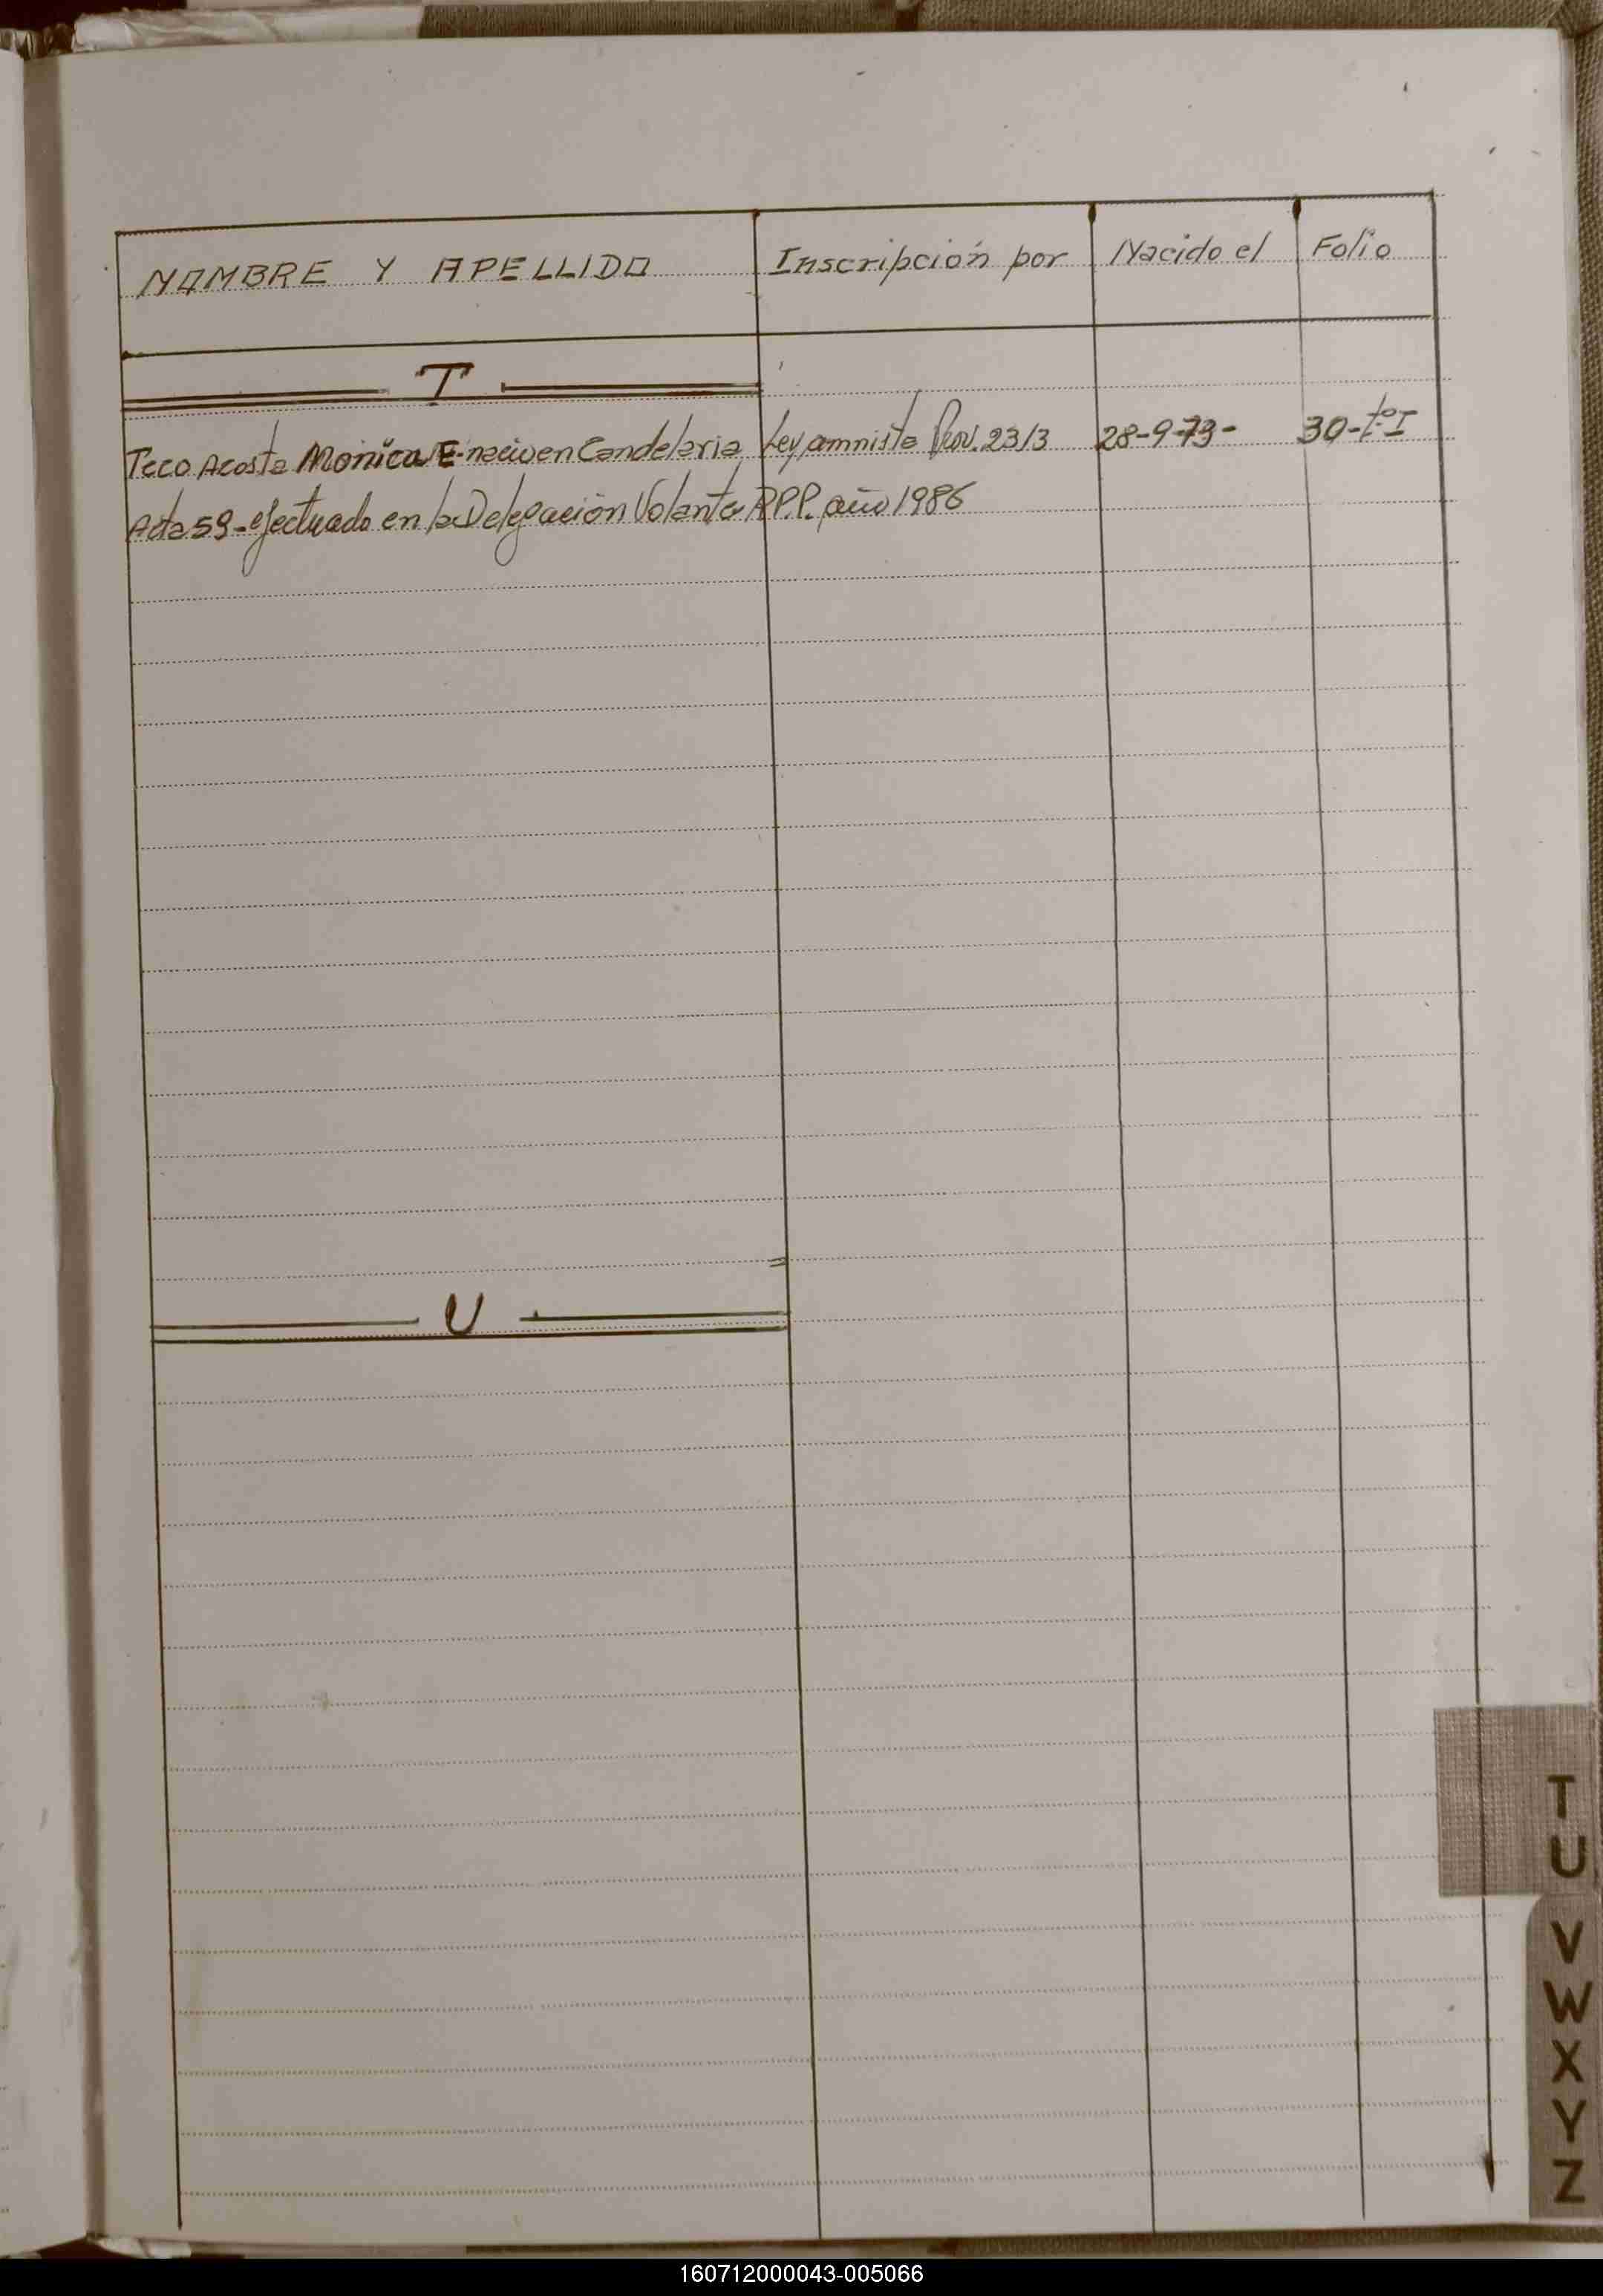 NOMBRE Y APELLIDO Inscripción por Nacido el Folio
T
Teco Acosta Monica E. nacio en Candelaria Ley amnistia Prov. 2313 28-9-73- 30-tº I
Acta 59- efectuado en la Delegación Volante R.P.P. año 1986
U
T
U
V
W
X
Y
Z
160712000043-005066